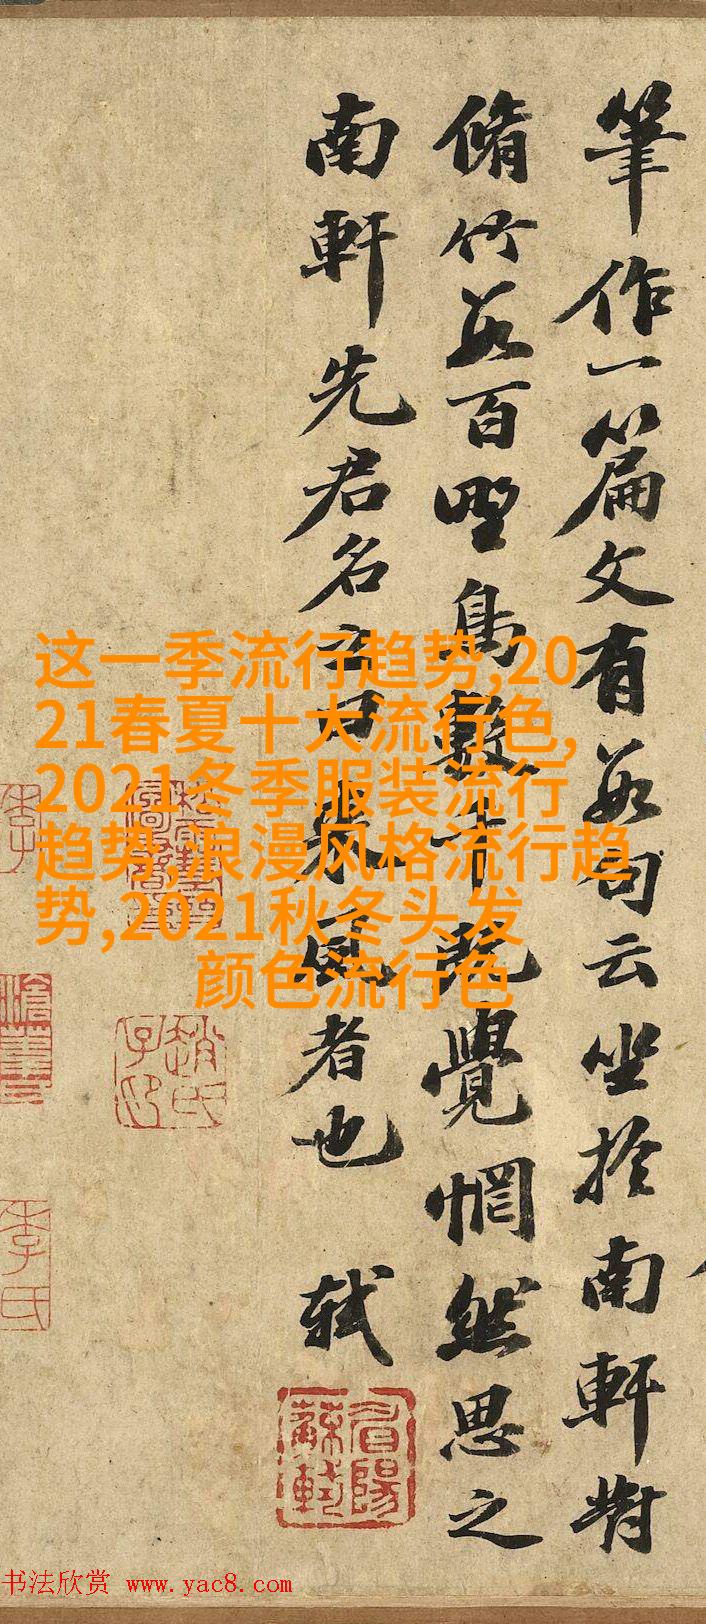 筆作一篇文有數句云坐扵南軒對
脩竹數百野鳥數千既覺惘然思之
南軒先君名之曰来風者也 軾
眉陽
蘇軾
李氏
这一季流行趋势,20
21春夏十大流行色,
2021冬季服装流行
趋势,浪漫风格流行趋
势,2021秋冬头发
颜色流行色
书法欣赏 www.yac8.com